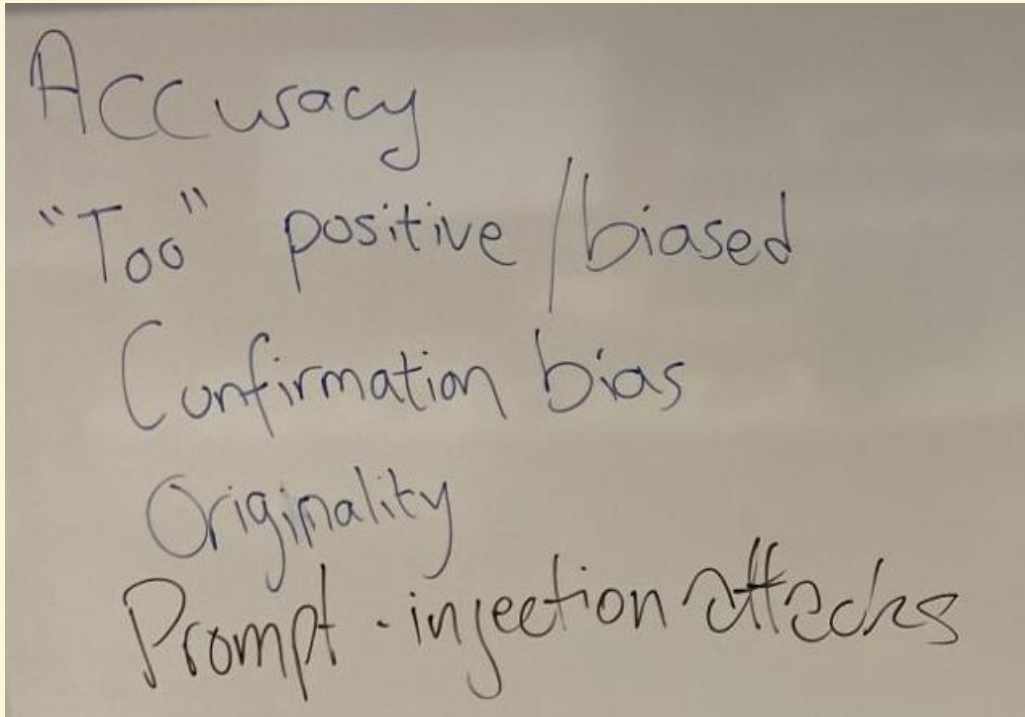 Accuracy
"Too" positive / biased
Confirmation bias
Originality
Prompt-injection attacks